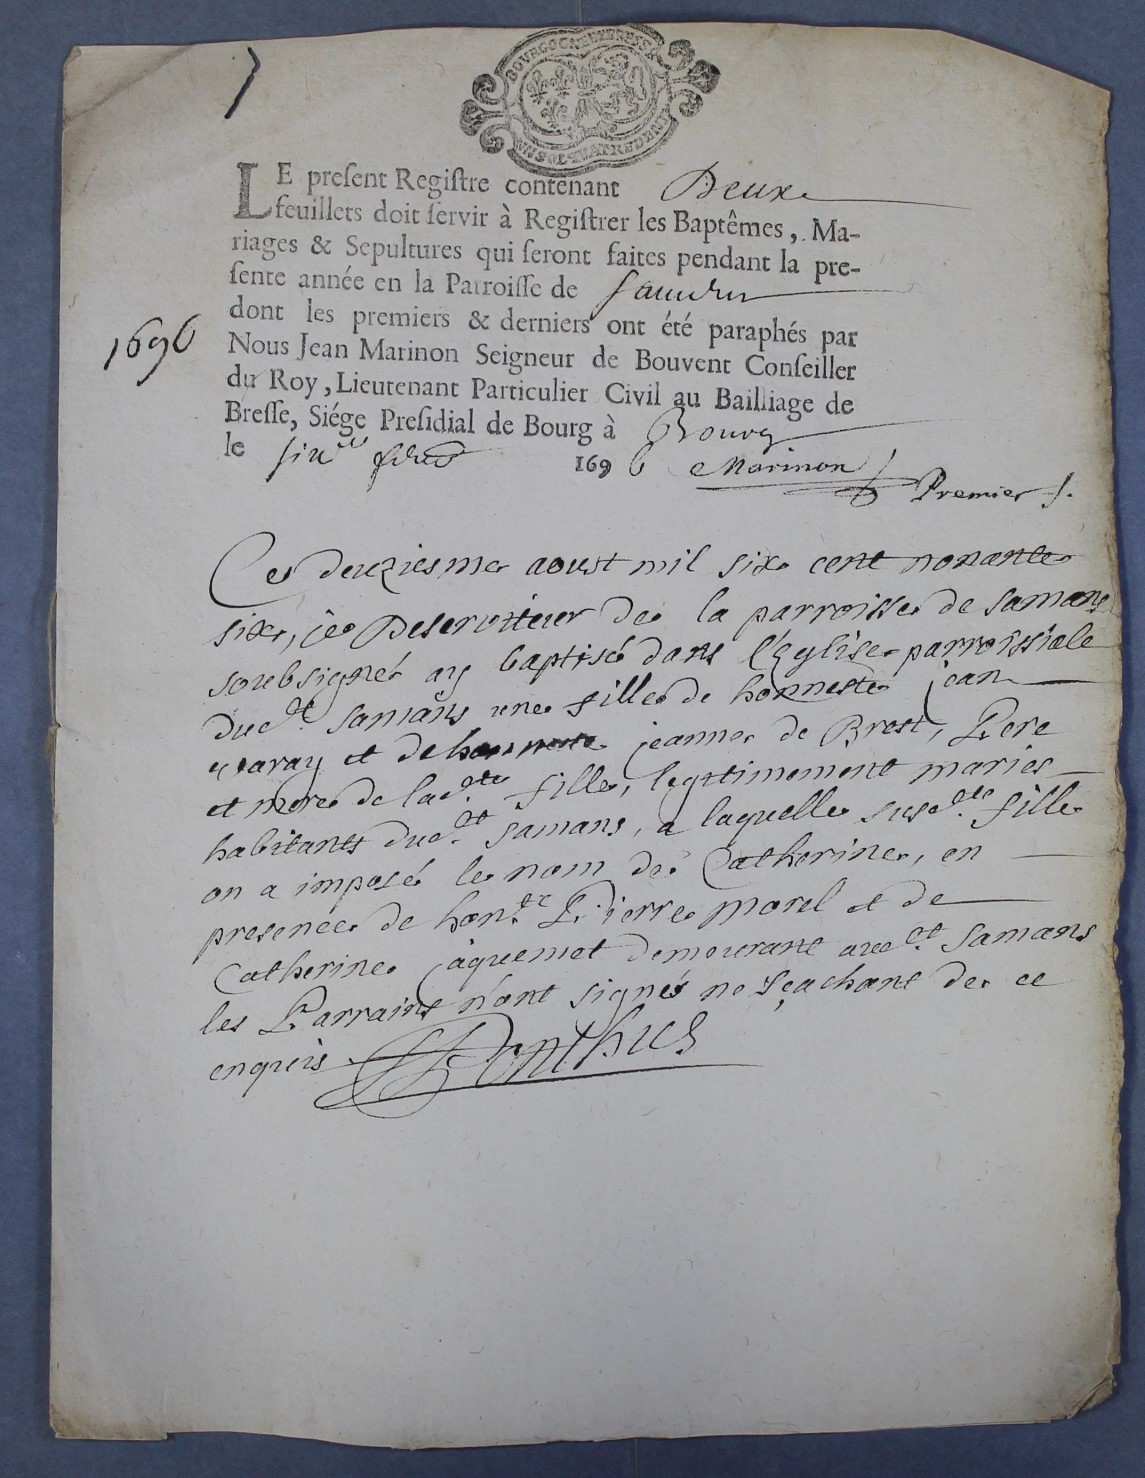 BOURGOGNE ET BRESSE
UN SOL QUATRE DEN
LE preſent Regiſtre contenant Deux
feuillets doit ſervir à Regiſtrer les Baptêmes, Ma-
riages & Sepultures qui ſeront faites pendant la pre-
ſente année en la Parroiſſe de
dont les premiers & derniers ont été paraphés par
1696
Nous Jean Marinon Seigneur de Bouvent Conſeiller
du Roy, Lieutenant Particulier Civil au Bailliage de
Breſſe, Siége Preſidial de Bourg à Bourg
le 1696 Marinon
Premier f.
Ce deuziesme aoust mil six cent nonante
six, je Deserviteur de la parroisse de Samans
soubsigné ay baptisé dans l'Eglise parroissiale
dud.t Samans une fille de honneste jean
et de honneste jeanne de Brest, Pere
et mere de lad.te fille, legitimement mariés
habitants dud.t Samans, a laquelle susd.te fille
on a imposé le nom de Catherine, en
presence de hon.te Pierre Morel et de
Catherine jaquemet demeurant aud.t Samans
les Parrains n'ont signés ne sçachant de ce
enquis Ponthus